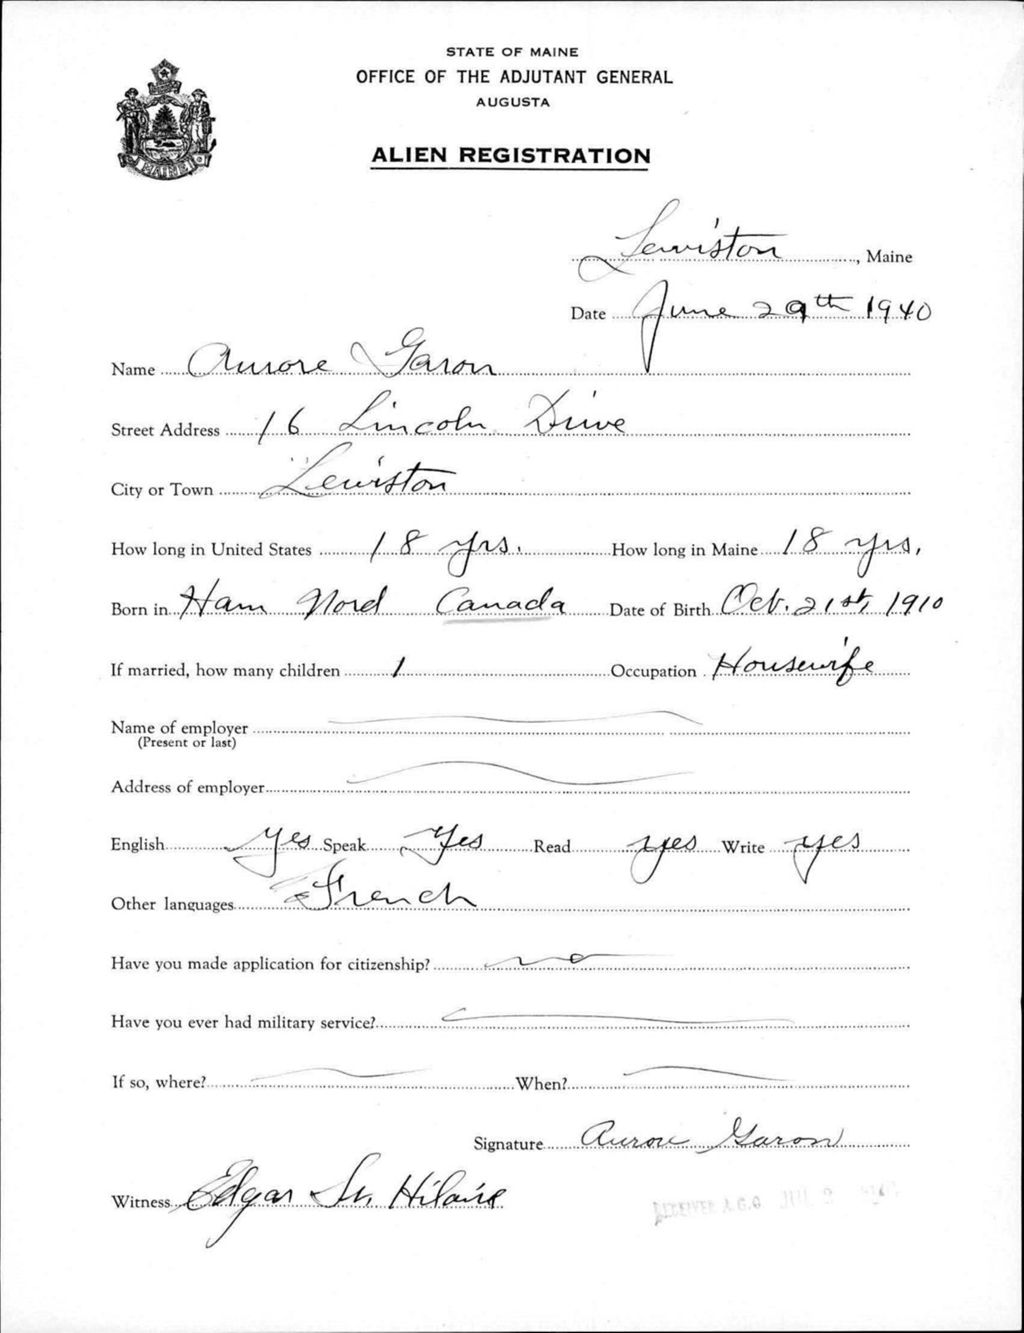 STATE OF MAINE
OFFICE OF THE ADJUTANT GENERAL
AUGUSTA
MAINE
ALIEN REGISTRATION
Lewiston, Maine
Date June 29th 1940
Name Aurore Garon
Street Address 16 Lincoln Drive
City or Town Lewiston
How long in United States 18 yrs. How long in Maine 18 yrs.
Born in Ham Nord Canada Date of Birth Oct. 21st, 1910
If married, how many children 1 Occupation Housewife
Name of employer
(Present or last)
Address of employer
English yes Speak Yes Read yes Write yes
Other languages French
Have you made application for citizenship? no
Have you ever had military service?
If so, where? When?
Signature Aurore Garon
Witness Edgar St. Hilaire
RECEIVED A.G.O. JUL